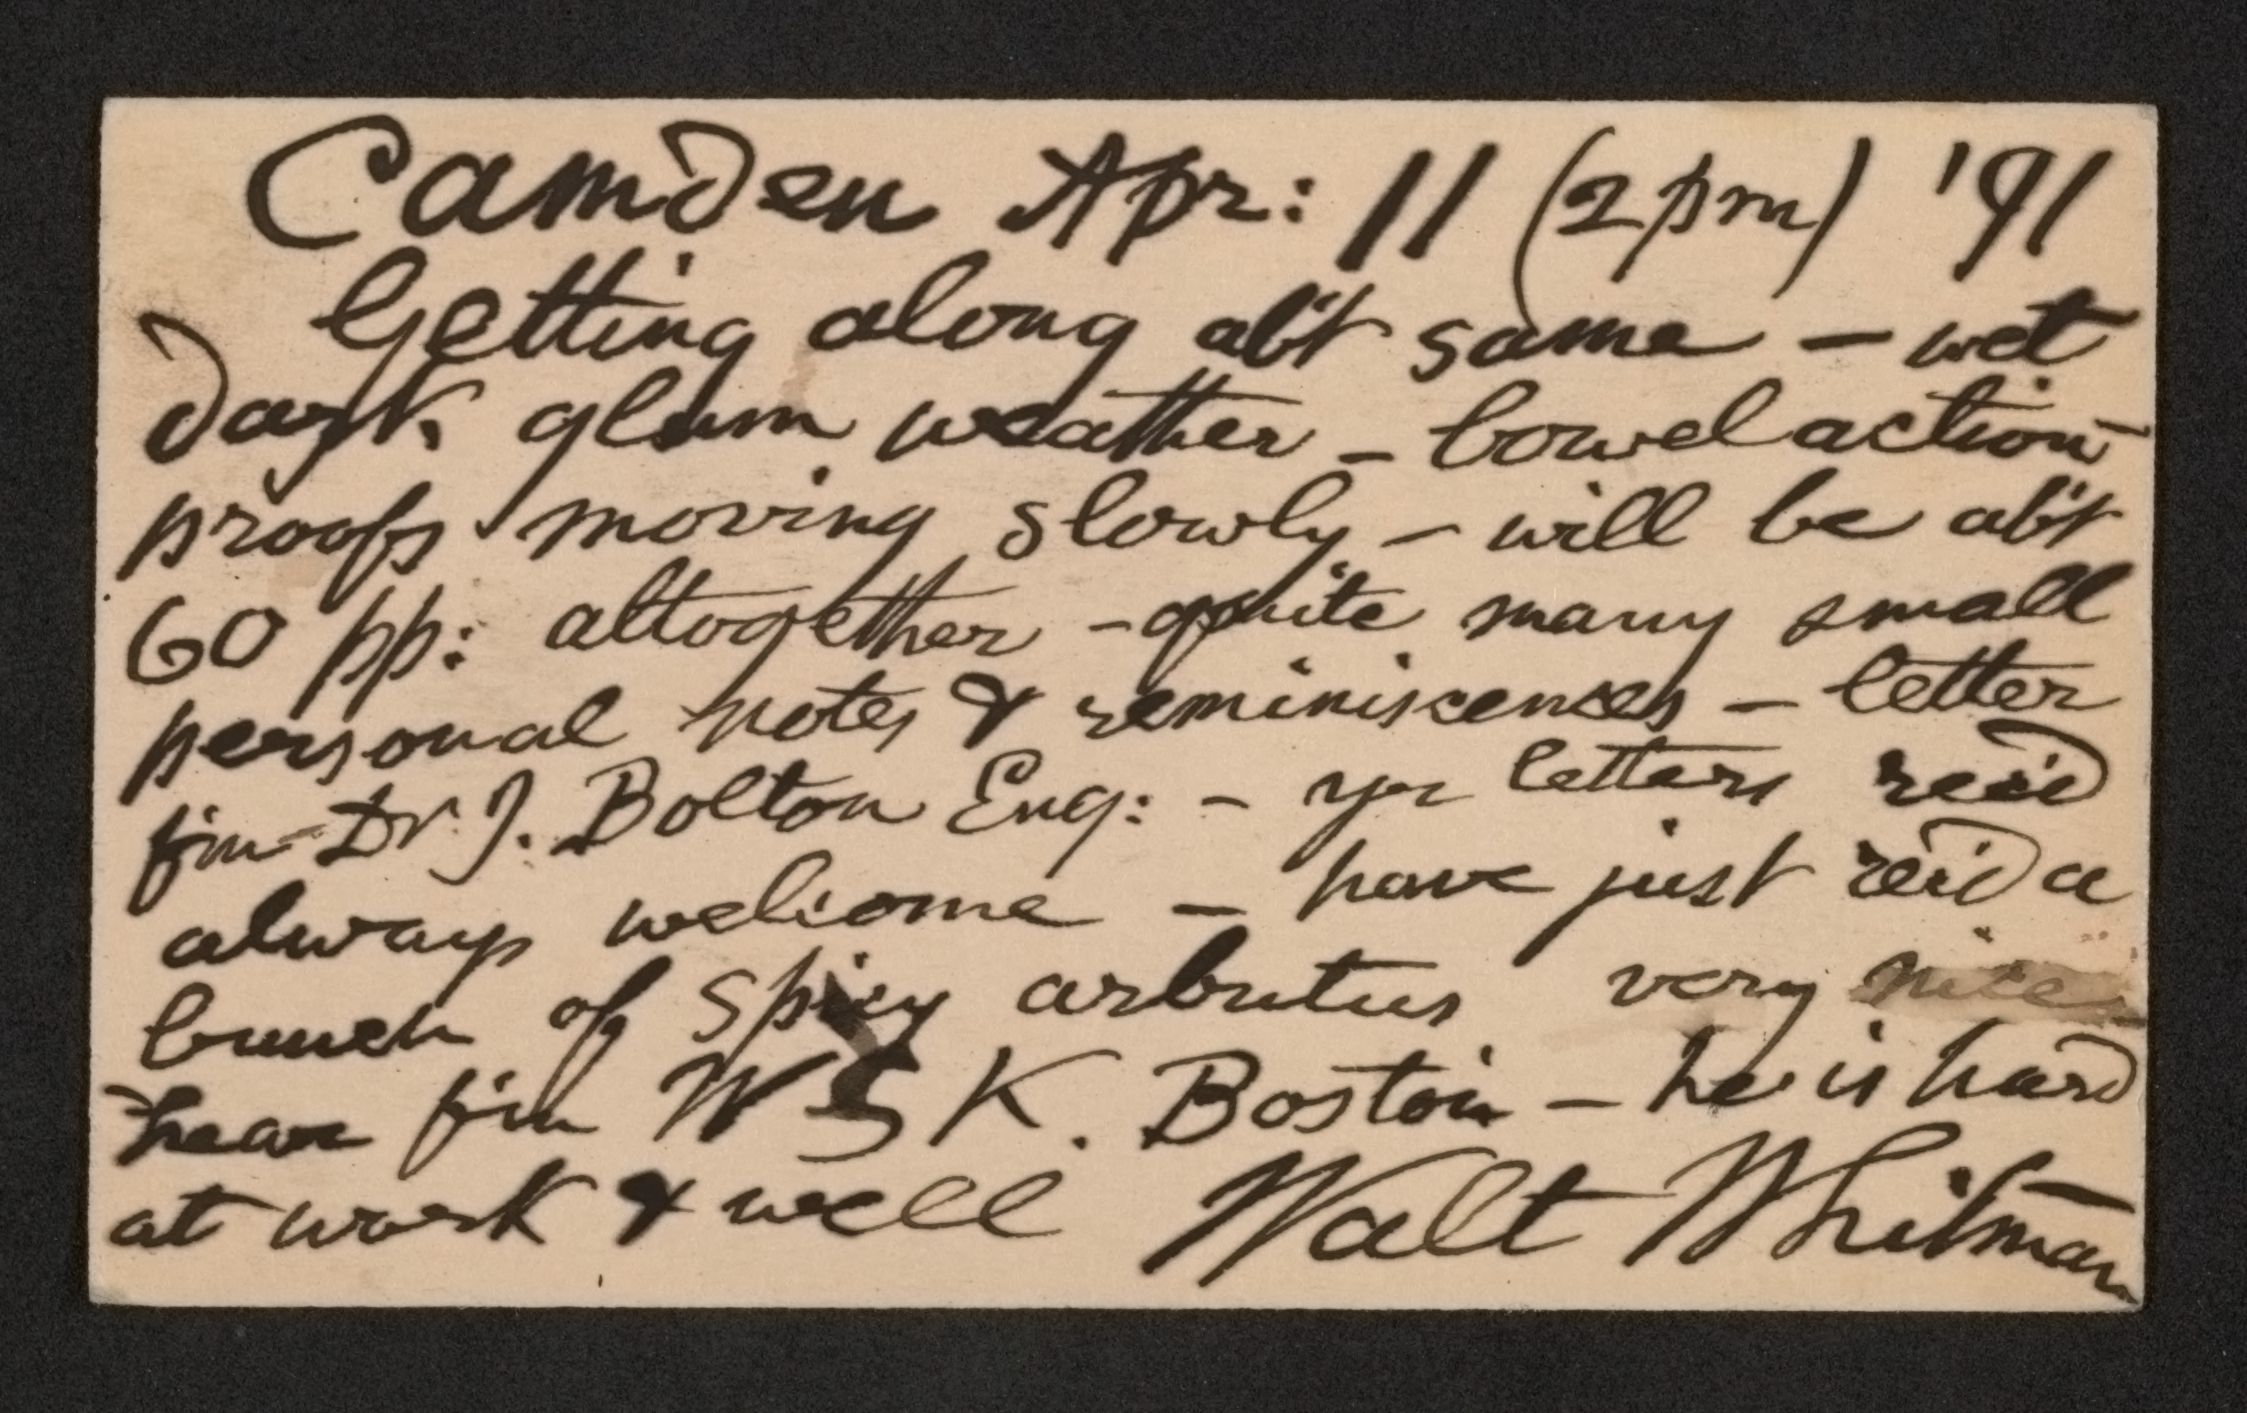 Camden Apr: 11 (2 pm) '91
Getting along ab't same – wet
dark glum weather – bowel action –
proofs moving slowly – will be ab't
60 pp: altogether – quite many small
personal notes & reminiscences – letter
f'm Dr J. Bolton Eng: – yr letters rec'd
always welcome – have just rec'd a
bunch of spicy arbutus very nice
hear f'm W S K. Boston – he is hard
at work & well Walt Whitman